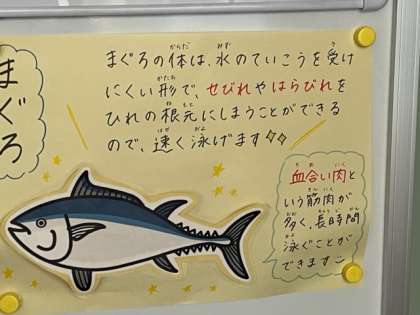 まぐろ
まぐろの体は、水のていこうを受け
にくい形で、せびれやはらびれを
ひれの根元にしまうことができる
ので、速く泳げます
血合い肉と
いう筋肉が
多く、長時間
泳ぐことが
できます